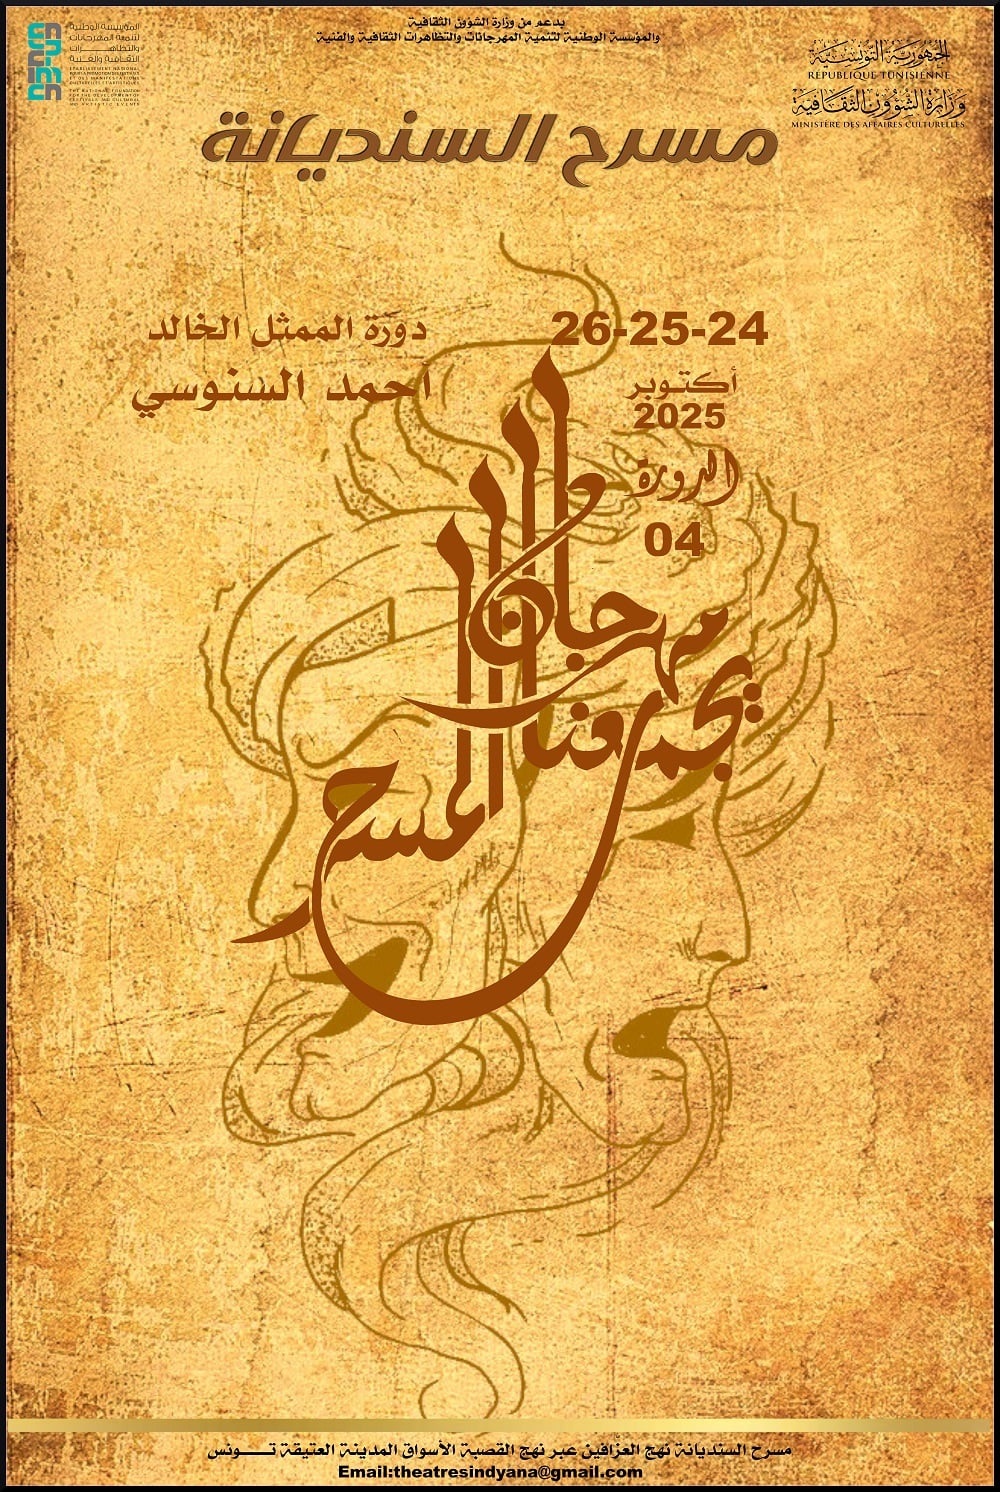 بدعم من وزارة الشؤون الثقافية
والمؤسسة الوطنية لتنمية المهرجانات والتظاهرات الثقافية والفنية
المؤسسة الوطنية
لتنمية المهرجانات
والتظاهرات
الثقافية والفنية
ETABLISSEMENT NATIONAL
POUR LA PROMOTION DES FESTIVALS
ET DES MANIFESTATIONS
CULTURELLES ET ARTISTIQUES
THE NATIONAL FOUNDATION
FOR THE DEVELOPMENT OF
FESTIVALS AND CULTURAL
AND ARTISTIC EVENTS
الجمهورية التونسية
REPUBLIQUE TUNISIENNE
وزارة الشؤون الثقافية
MINISTERE DES AFFAIRES CULTURELLES
مسرح السنديانة
26-25-24
أكتوبر
2025
الدورة
04
دورة الممثل الخالد
أحمد السنوسي
مهرجان
يجمعنا
المسرح
مسرح السنديانة نهج العزافين عبر نهج القصبة الأسواق المدينة العتيقة تـــونس
Email:theatresindyana@gmail.com